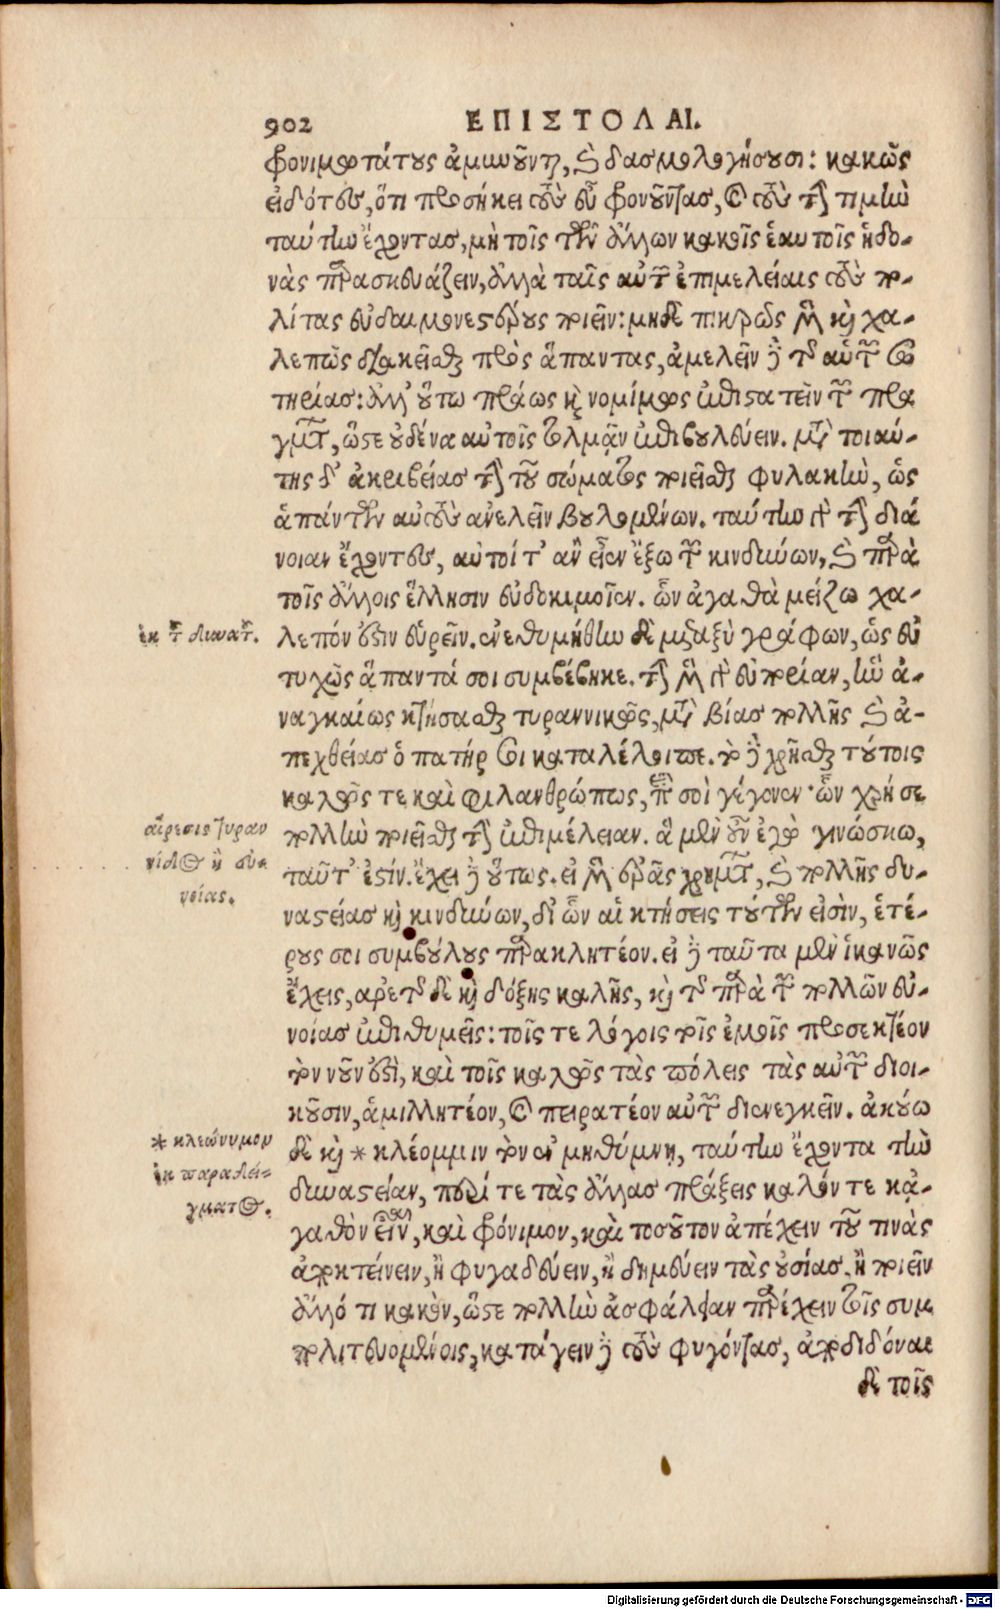 902 ΕΠΙΣΤΟΛΑΙ.
φρονιμωτάτους ἀμυνοῦνται, καὶ δασμολογήσουσι: κακῶς
εἰδότες, ὅτι προσήκει τοὺς εὖ φρονοῦντας, καὶ τοὺς τὴν τιμὴν
ταύτην ἔχοντας, μὴ τοῖς τῶν ἄλλων κακοῖς ἑαυτοῖς ἡδο-
νὰς παρασκευάζειν, ἀλλὰ ταῖς αὑτῶν ἐπιμελείαις τοὺς πο-
λίτας εὐδαιμονεστέρους ποιεῖν: μηδὲ πικρῶς μὲν καὶ χα-
λεπῶς διακεῖσθαι πρὸς ἅπαντας, ἀμελεῖν δὲ τῆς αὑτῶν σω
τηρίας: ἀλλ' οὕτω πράως καὶ νομίμως ἐπιστατεῖν τῶν πρα
γμάτων, ὥστε οὐδένα αὐτοῖς τολμᾶν ἐπιβουλεύειν. μετὰ τοιαύ-
της δ' ἀκριβείας τὴν τοῦ σώματος ποιεῖσθαι φυλακὴν, ὡς
ἁπάντων αὐτοὺς ἀνελεῖν βουλομένων. ταύτην γὰρ τὴν διά
νοιαν ἔχοντες, αὐτοί τ' ἂν εἶεν ἔξω τῶν κινδύνων, καὶ παρὰ
τοῖς ἄλλοις ἕλλησιν εὐδοκιμοῖεν. ὧν ἀγαθὰ μείζω χα-
ἐκ τῶν δυνατῶν.
λεπόν ἐστιν εὑρεῖν. ἐνεθυμήθην δὲ μεταξὺ γράφων, ὡς εὐ
τυχῶς ἅπαντά σοι συμβέβηκε. τὴν μὲν γὰρ εὐπορίαν, ἣν ἀ-
ναγκαίως κτήσασθαι τυραννικῶς, μετὰ βίας πολλῆς καὶ ἀ-
πεχθείας ὁ πατήρ σοι καταλέλοιπε. τὸ δὲ χρῆσθαι τούτοις
καλῶς τε καὶ φιλανθρώπως, ἐπὶ σοὶ γέγονεν· ὧν χρή σε
αἵρεσις τυραν
νίδος ἢ εὐ-
νοίας.
πολλὴν ποιεῖσθαι τὴν ἐπιμέλειαν. ἃ μὲν οὖν ἐγὼ γινώσκω,
ταῦτ' ἐστίν. ἔχει δὲ οὕτως. εἰ μὲν ἐρᾷς χρημάτων, καὶ πολλῆς δυ-
ναστείας καὶ κινδύνων, δι' ὧν αἱ κτήσεις τούτων εἰσὶν, ἑτέ-
ρους σοι συμβούλους παρακλητέον. εἰ δὲ ταῦτα μὲν ἱκανῶς
ἔχεις, ἀρετῆς δὲ καὶ δόξης καλῆς, καὶ τῆς παρὰ τῶν πολλῶν εὐ-
νοίας ἐπιθυμεῖς: τοῖς τε λόγοις τοῖς ἐμοῖς προσεκτέον
τὸν νοῦν ἐστὶ, καὶ τοῖς καλῶς τὰς πόλεις τὰς αὑτῶν διοι-
κοῦσιν, ἁμιλλητέον, καὶ πειρατέον αὐτῶν διενεγκεῖν. ἀκούω
* κλεώνυμον
ἐκ παραδεί-
γματος.
δὲ καὶ * κλέομμιν τὸν ἐν μηθύμνῃ, ταύτην ἔχοντα τὴν
δυναστείαν, περί τε τὰς ἄλλας πράξεις καλόν τε κἀ-
γαθὸν εἶναι, καὶ φρόνιμον, καὶ τοσοῦτον ἀπέχειν τοῦ τινὰς
ἀποκτείνειν, ἢ φυγαδεύειν, ἢ δημεύειν τὰς οὐσίας, ἢ ποιεῖν
ἄλλό τι κακὸν, ὥστε πολλὴν ἀσφάλειαν παρέχειν τοῖς συμ
πολιτευομένοις, κατάγειν δὲ τοὺς φυγόντας, ἀποδιδόναι
δὲ τοῖς
Digitalisierung gefördert durch die Deutsche Forschungsgemeinschaft - DFG